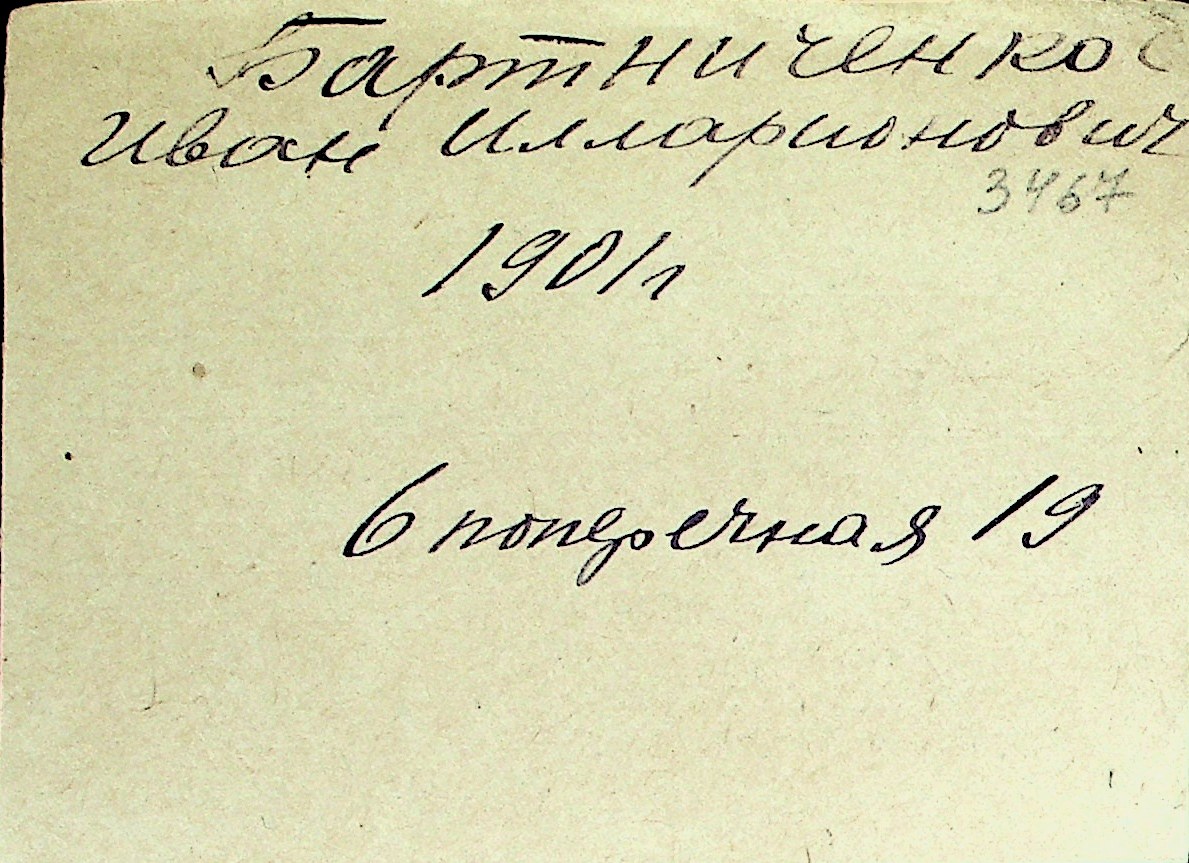 Бартниченко
Иван Илларионович
3467
1901г
6 поперечная 19